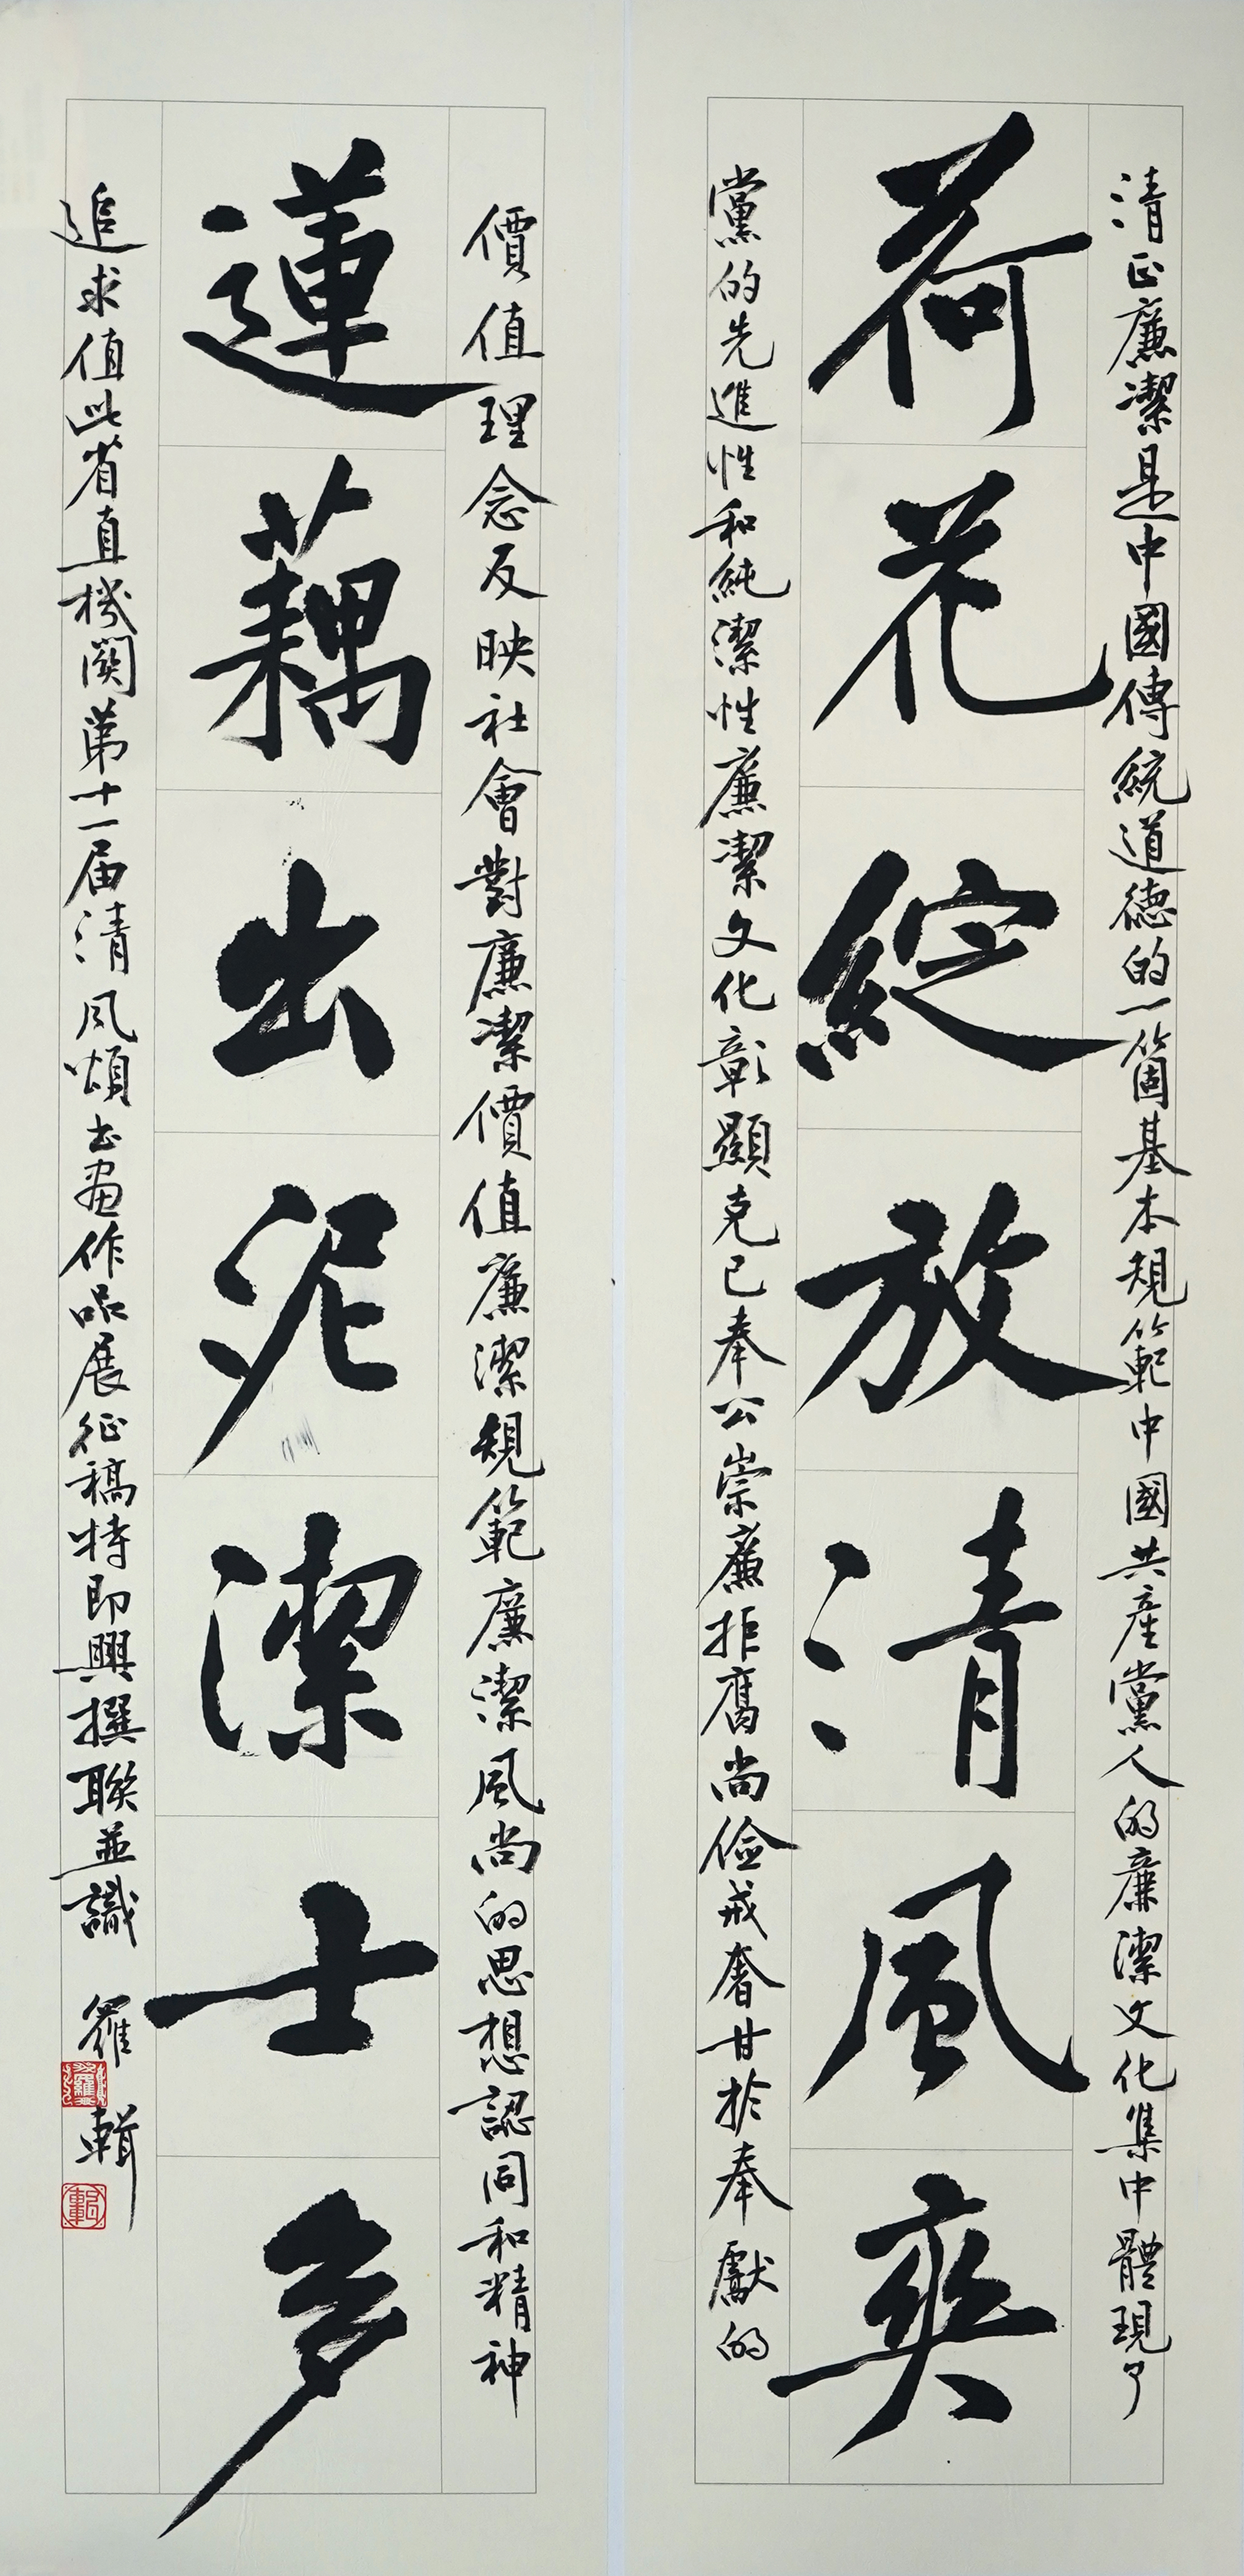 清正廉潔是中國傳統道德的一箇基本規範中國共産黨人的廉潔文化集中體現了
荷花綻放清風爽
黨的先進性和純潔性廉潔文化彰顯克己奉公崇廉拒腐尚儉戒奢甘於奉獻的
價值理念反映社會對廉潔價值廉潔規範廉潔風尚的思想認同和精神
蓮藕出泥潔士多
追求值此省直機關第十一届清風頌书畫作品展征稿特即興撰聯並識
羅輯